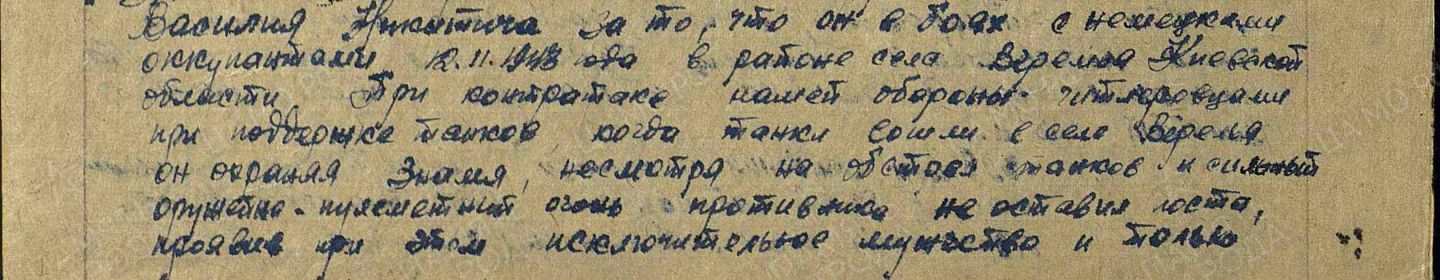 Василия Никитича за то, что он в боях с немецкими
оккупантами 12.11.1943 года в районе села Веремья Киевской
области При контратаке нашей обороны гитлеровцами
при поддержке танков, когда танки вошли в село Веремья
он охраняя Знамя, несмотря на обстрел танков и сильный
оружейно-пулеметный огонь противника не оставил поста,
проявив при этом исключительное мужество и только